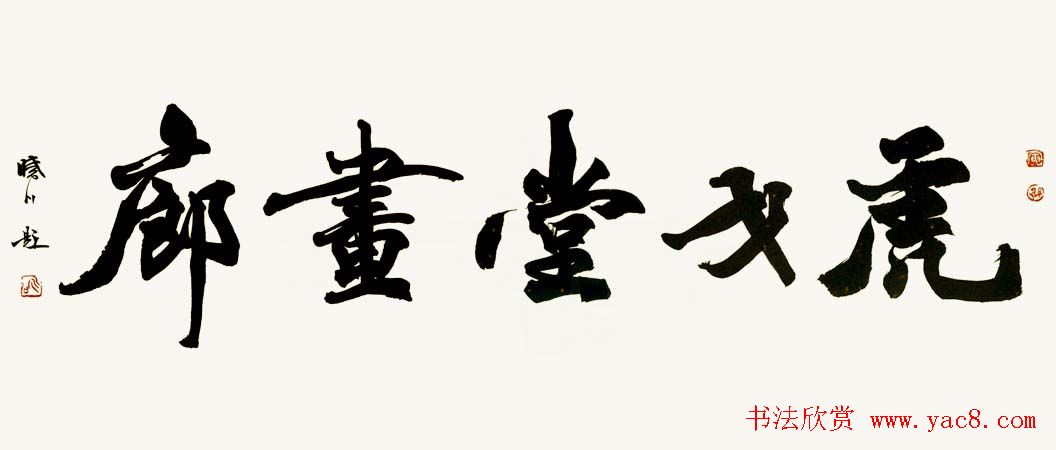 虎堂畫廊
曉川題
书法欣赏 www.yac8.com